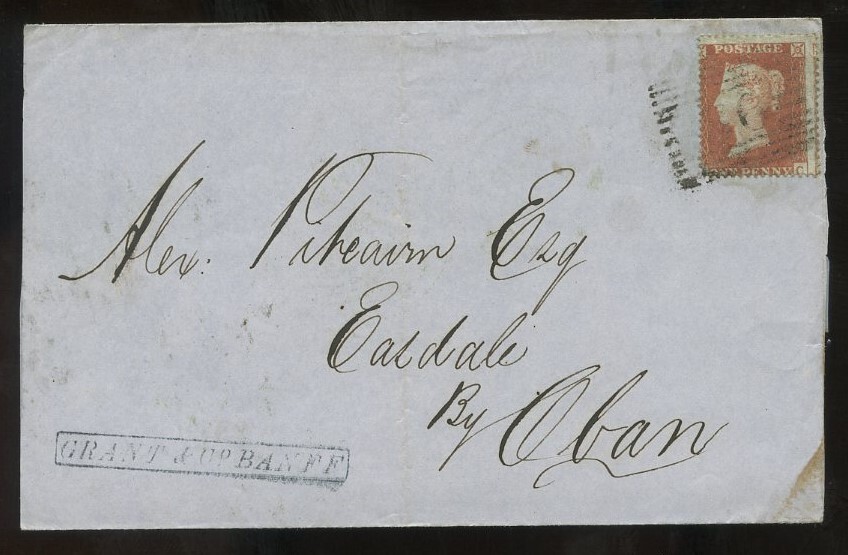 POSTAGE
PENNY
C
Alex: Pitcairn Esq
Easdale
By Oban
GRANT & Co BANFF